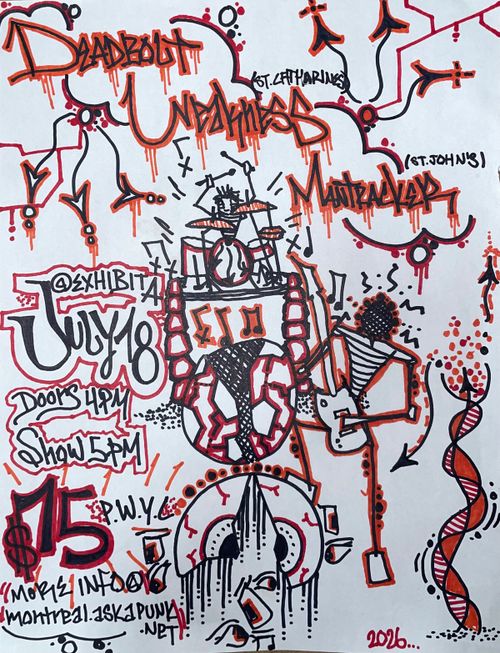 DEADBOLT
(ST. CATHARINES)
WEAKNESS
(ST. JOHN'S)
MANTRACKER
@EXHIBIT A
JULY 18
DOORS 4PM
SHOW 5PM
$15 P.W.Y.C
"MORE INFO @
montreal.askapunk
.NET"
2026...